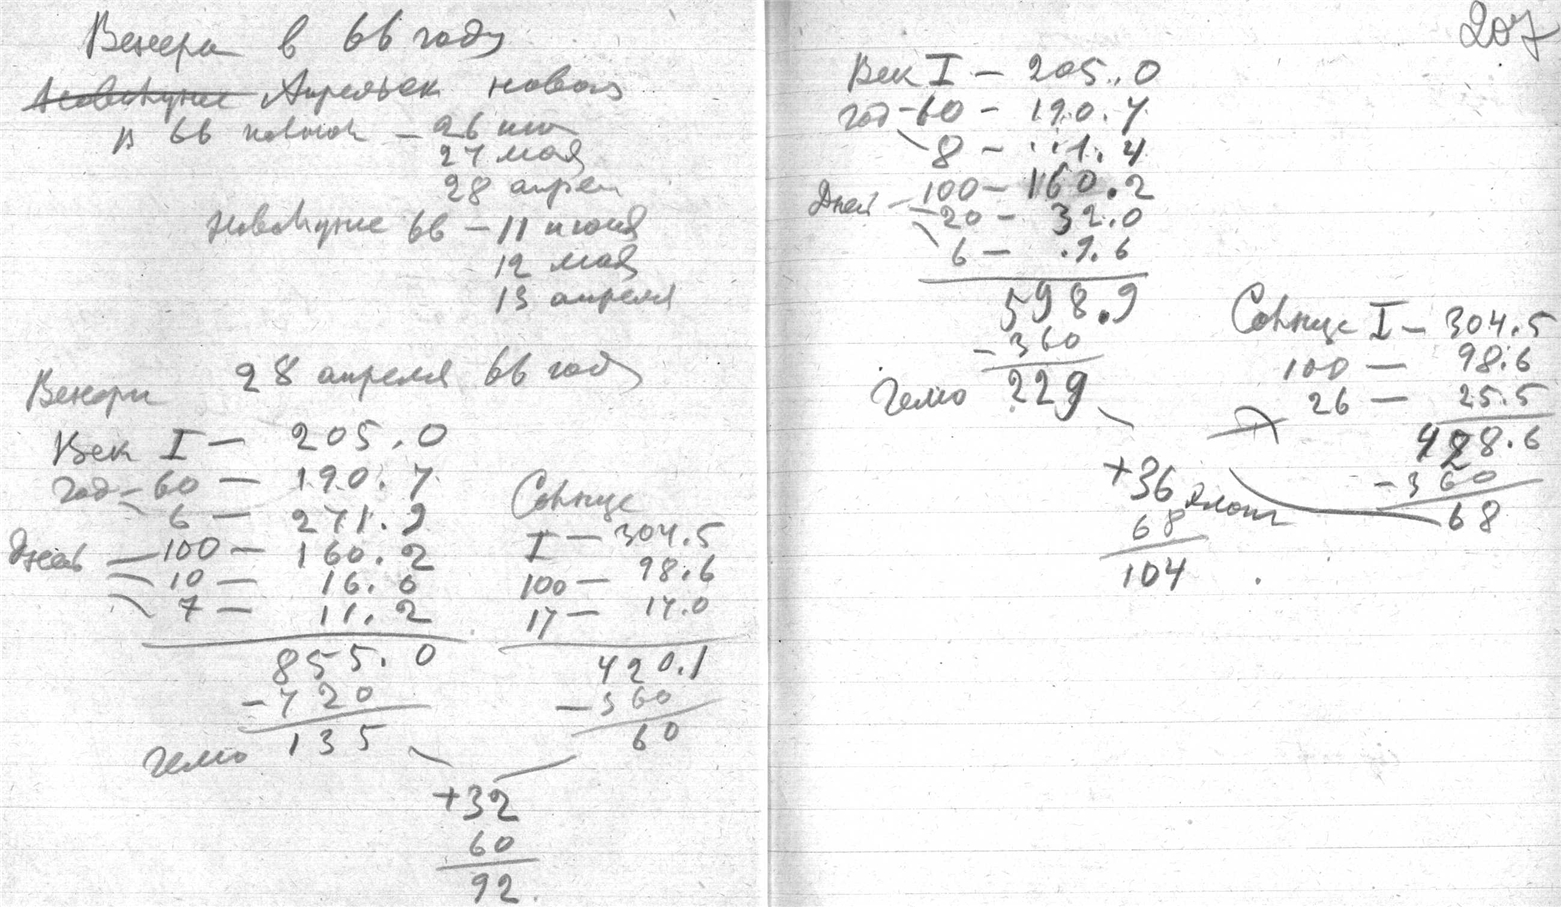 Венера в 66 году
Новолуние Апрельск новол
в 66 полнол — 26 июн
27 мая
28 апрел
Новолуние 66 — 11 июня
12 мая
13 апреля
28 апреля 66 год
Венера
Век I — 205.0
год — 60 — 190.7
6 — 271.9
Дней — 100 — 160.2
10 — 16.0
7 — 11.2
855.0
-720
гелио 135
Солнце
I — 304.5
100 — 98.6
17 — 17.0
420.1
-360
60
+32
60
92.
207
Век I — 205.0
год - 60 — 190.7
8 — ··1.4
Дней — 100 — 160.2
20 — 32.0
6 — .9.6
598.9
-360
гелио 229
Солнце I — 304.5
100 — 98.6
26 — 25.5
428.6
-360
68
+36
68
104